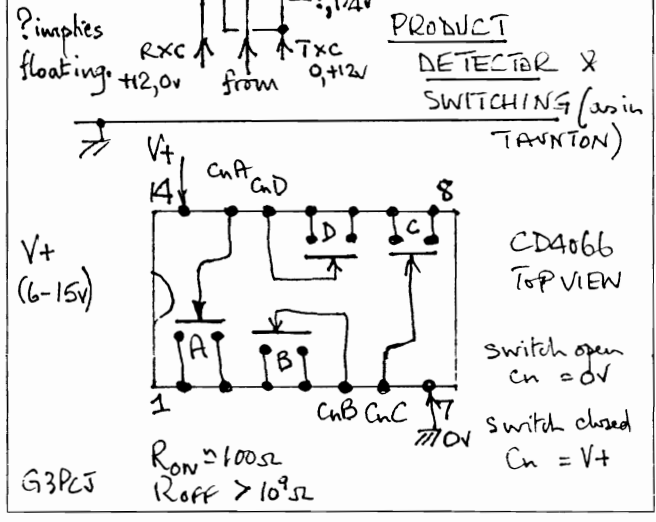 ?implies
floating.
:,1/4v
RXC
+12,0v
from
TXC
0,+12v
PRODUCT
DETECTOR &
SWITCHING (as in
TAUNTON)
V+
14
CnA
CnD
8
D
C
V+
(6-15v)
CD4066
TOP VIEW
A
B
1
CnB
CnC
7
0v
switch open
Cn = 0V
switch closed
Cn = V+
G3PCJ
RON ≈ 100Ω
ROFF > 10⁹Ω